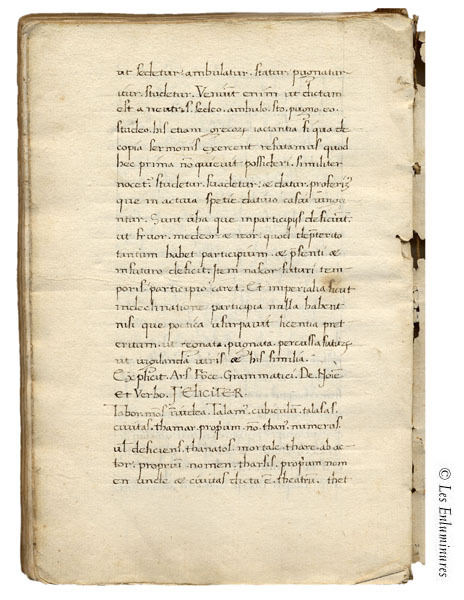 ut sedetur. ambulatur. statur. pugnatur
itur. studetur. Veniunt enim ut dictum
est a neutris. sedeo. ambulo. sto. pugno. eo.
studeo. his etiam grecorum iactantia si qua de
copia sermonis exercent refutamus quod
hec prima non quieuit possideri. similiter
nocetur. studetur. suadetur. & datur. proferunt
que in actiua spetie datiuo casui iungun
ntur. Sunt alia que in participijs deficiunt.
ut fruor. medeor. & uor. quod
tantum habet participium. & psenti &
infuturo deficit. Item nascor futuri tem
poris participio caret. Et imperialia sicut
indeclinatione participia nulla habent
nisi que poetica usurpauit licentia pret
eritum. ut regnata. pugnata. percussa
ut uigilanda uiris & his similia.
Explicit. Ars Foce. Grammatici. De. Noie
et Verbo. FELICITER.
labor. mos. cubiculum. talasas.
ciuitas. thamar. proprium. no. than. numerus
ul deficiens. thanatos. mortale. thare. ab ac
tor. proprium nomen. tharsis. proprium nom
en unde & ciuitas dicta e. theatrum. thet
© Les Enluminures